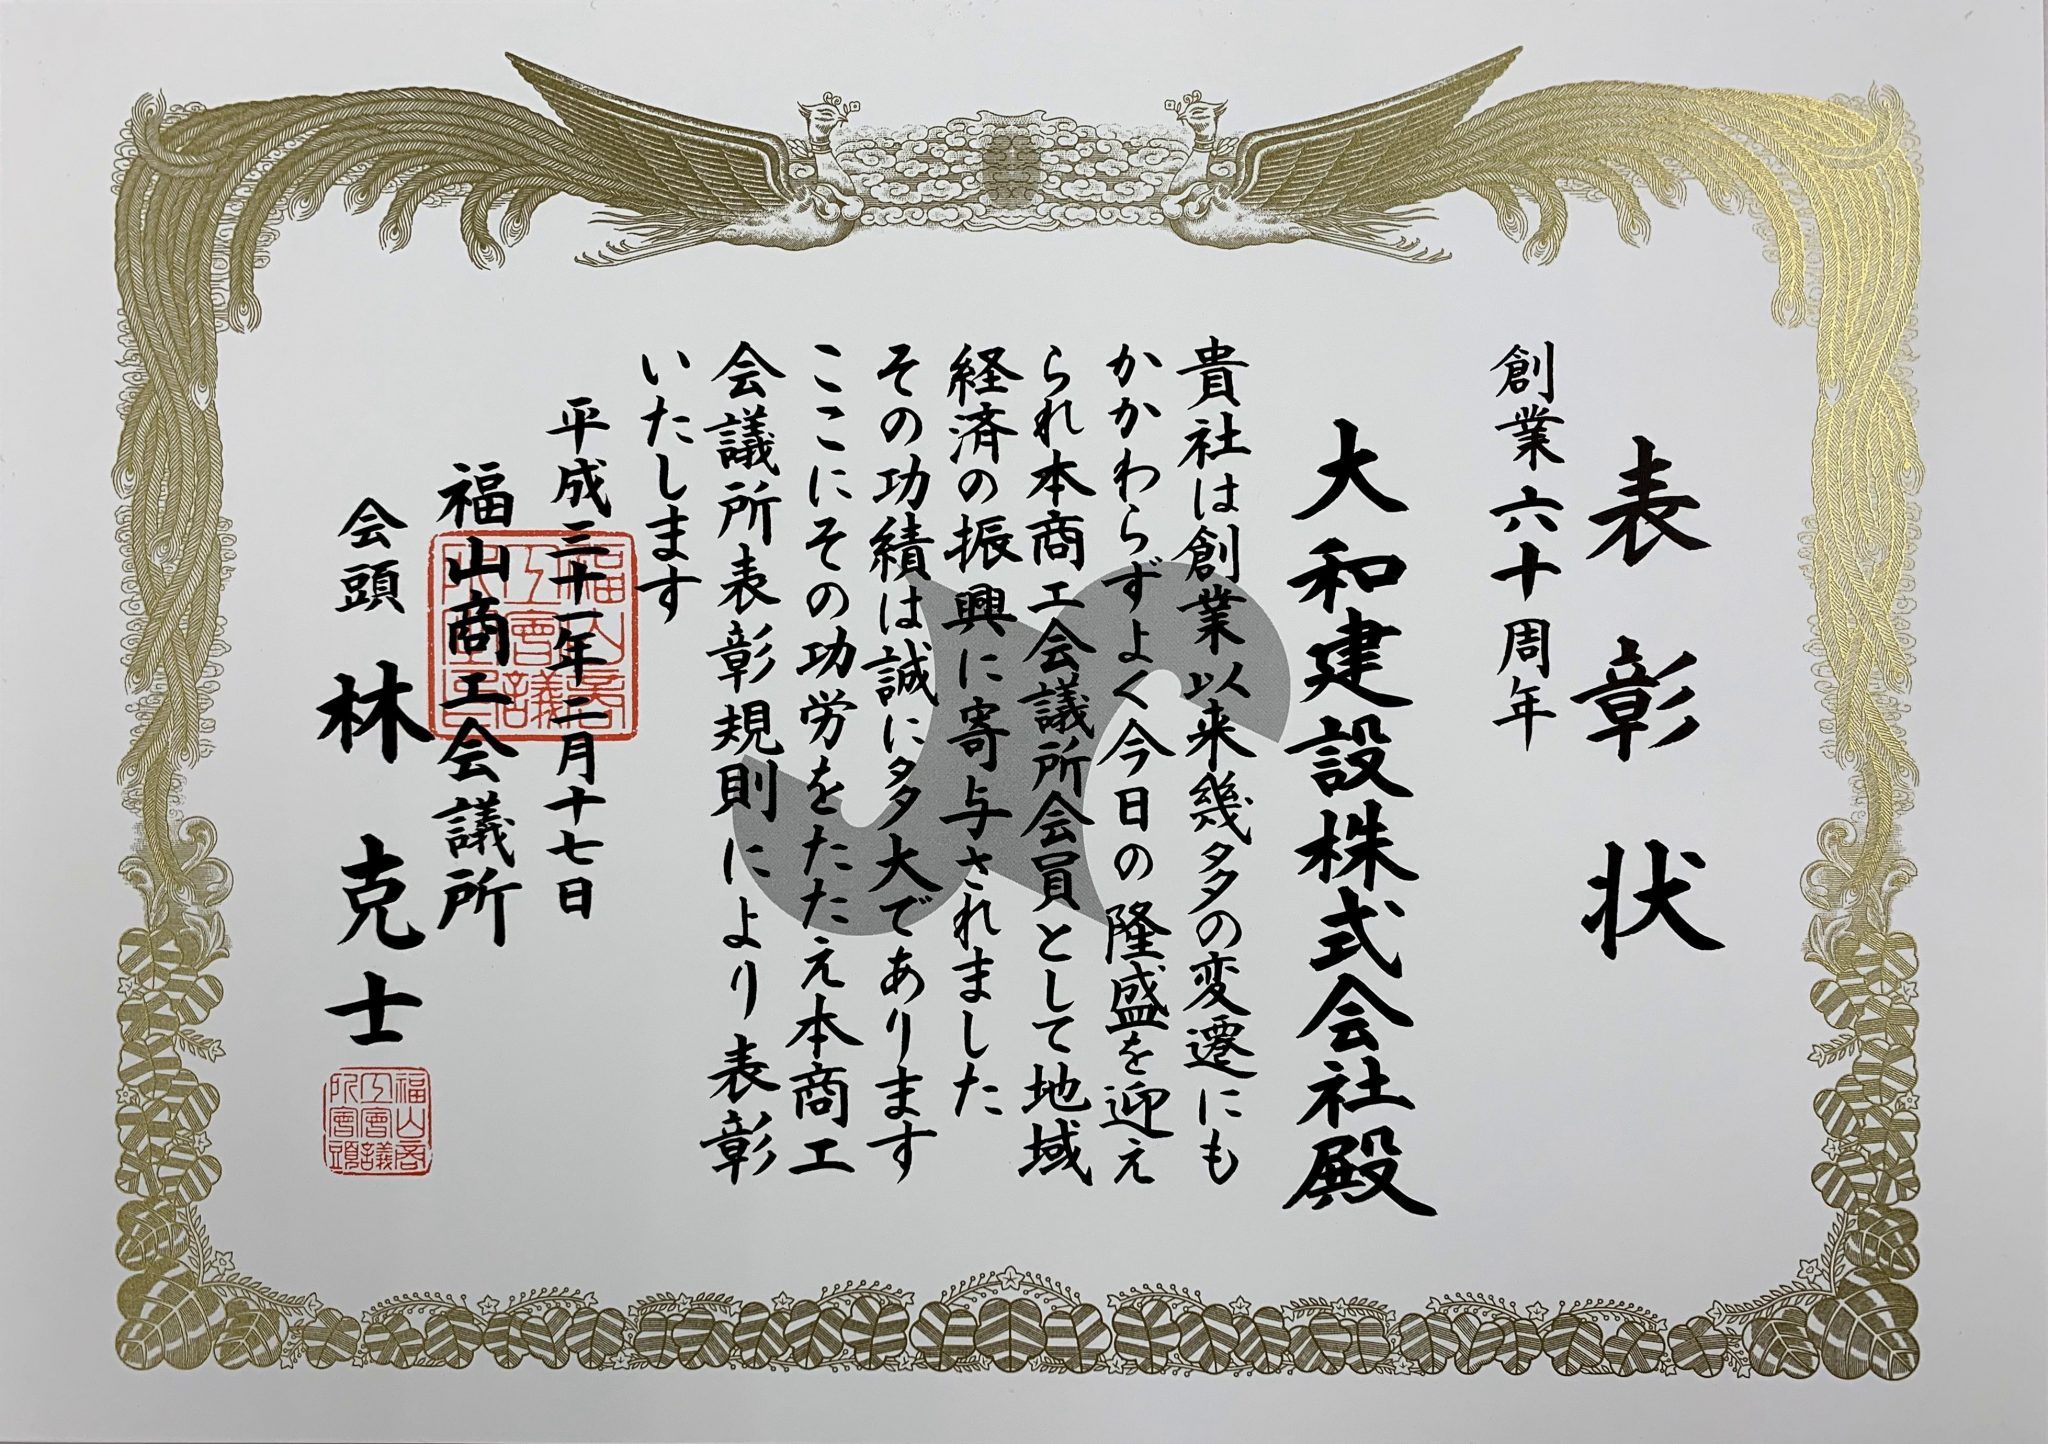 表彰状
創業六十周年
大和建設株式会社殿
貴社は創業以来幾多の変遷にも
かかわらずよく今日の隆盛を迎え
られ本商工会議所会員として地域
経済の振興に寄与されました
その功績は誠に多大であります
ここにその功労をたたえ本商工
会議所表彰規則により表彰
いたします
平成三十一年二月十七日
福山商工会議所
会頭 林克士
福山商工會議所會頭